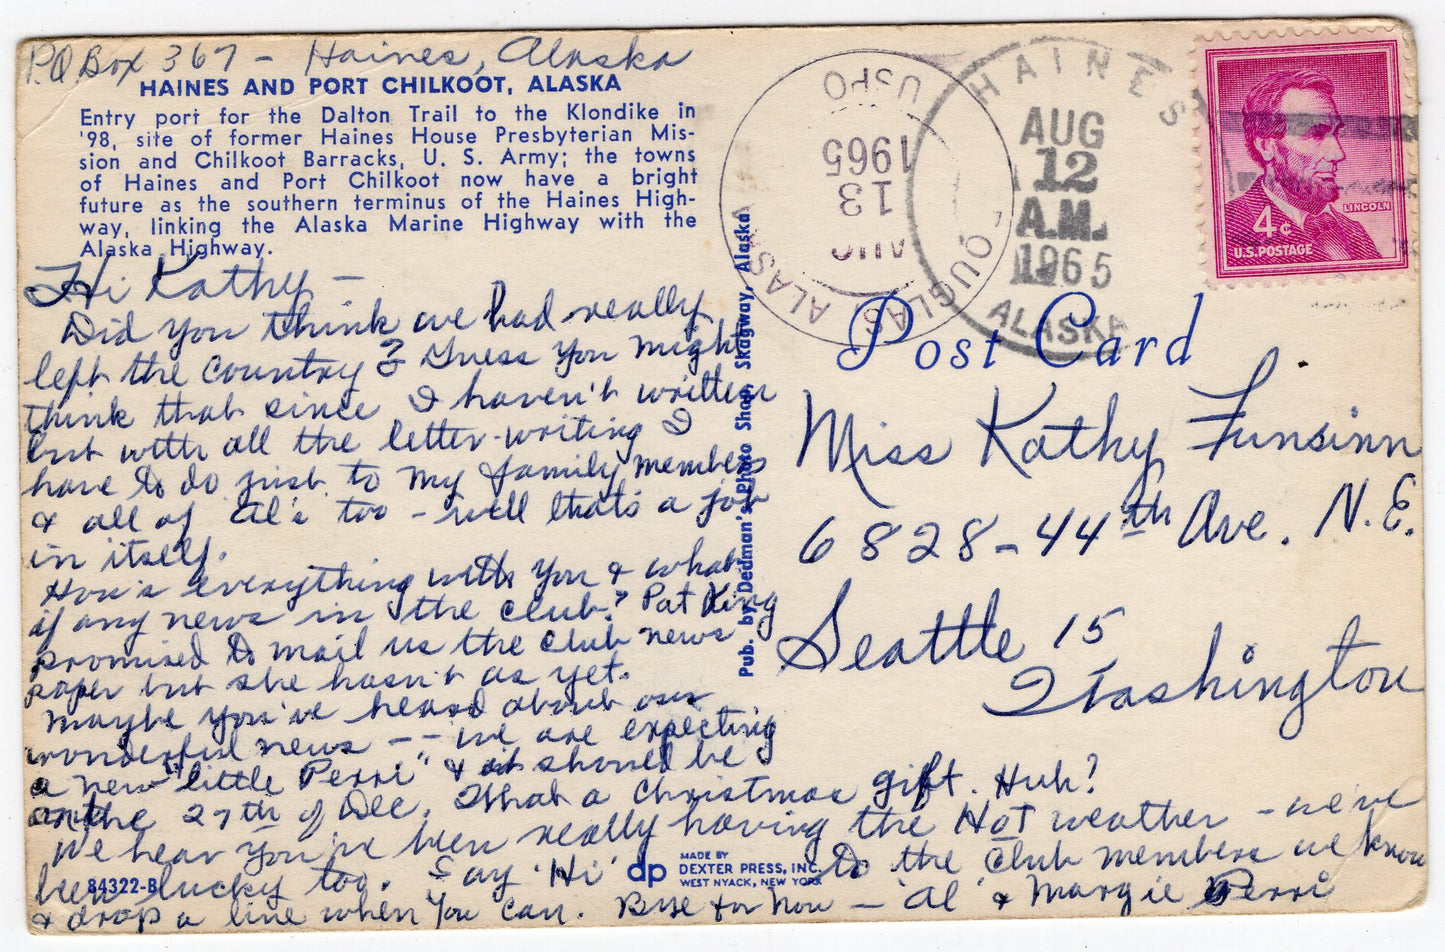 PO Box 367 - Haines, Alaska
HAINES AND PORT CHILKOOT, ALASKA
Entry port for the Dalton Trail to the Klondike in
'98, site of former Haines House Presbyterian Mis-
sion and Chilkoot Barracks, U. S. Army; the towns
of Haines and Port Chilkoot now have a bright
future as the southern terminus of the Haines High-
way, linking the Alaska Marine Highway with the
Alaska Highway.
Hi Kathy -
Did you think we had really
left the country? Guess you might
think that since I haven't written
but with all the letter-writing I
have to do just to my family members
& all of Al's too - well that's a job
in itself.
How's everything with you & what
if any news in the club? Pat King
promised to mail us the club news
paper but she hasn't as yet.
Maybe you've heard about our
wonderful news -- we are expecting
a new "little Perri" & it should be
on the 27th of Dec. What a Christmas gift. Huh?
We hear you've been really having the HOT weather - we've
been lucky too. Say 'Hi' to the club members we know
& drop a line when you can. Bye for now - 'Al' & Margie Perri
84322-B
dp
MADE BY
DEXTER PRESS, INC.
WEST NYACK, NEW YORK
Pub. by Dedman's Photo Shop, Skagway, Alaska
USPO
DOUGLAS ALASKA
AUG
13
1965
HAINES
AUG
12
A.M.
1965
ALASKA
LINCOLN
4¢
U.S. POSTAGE
Post Card
Miss Kathy Funsinn
6828-44th Ave. N.E.
Seattle 15
Washington